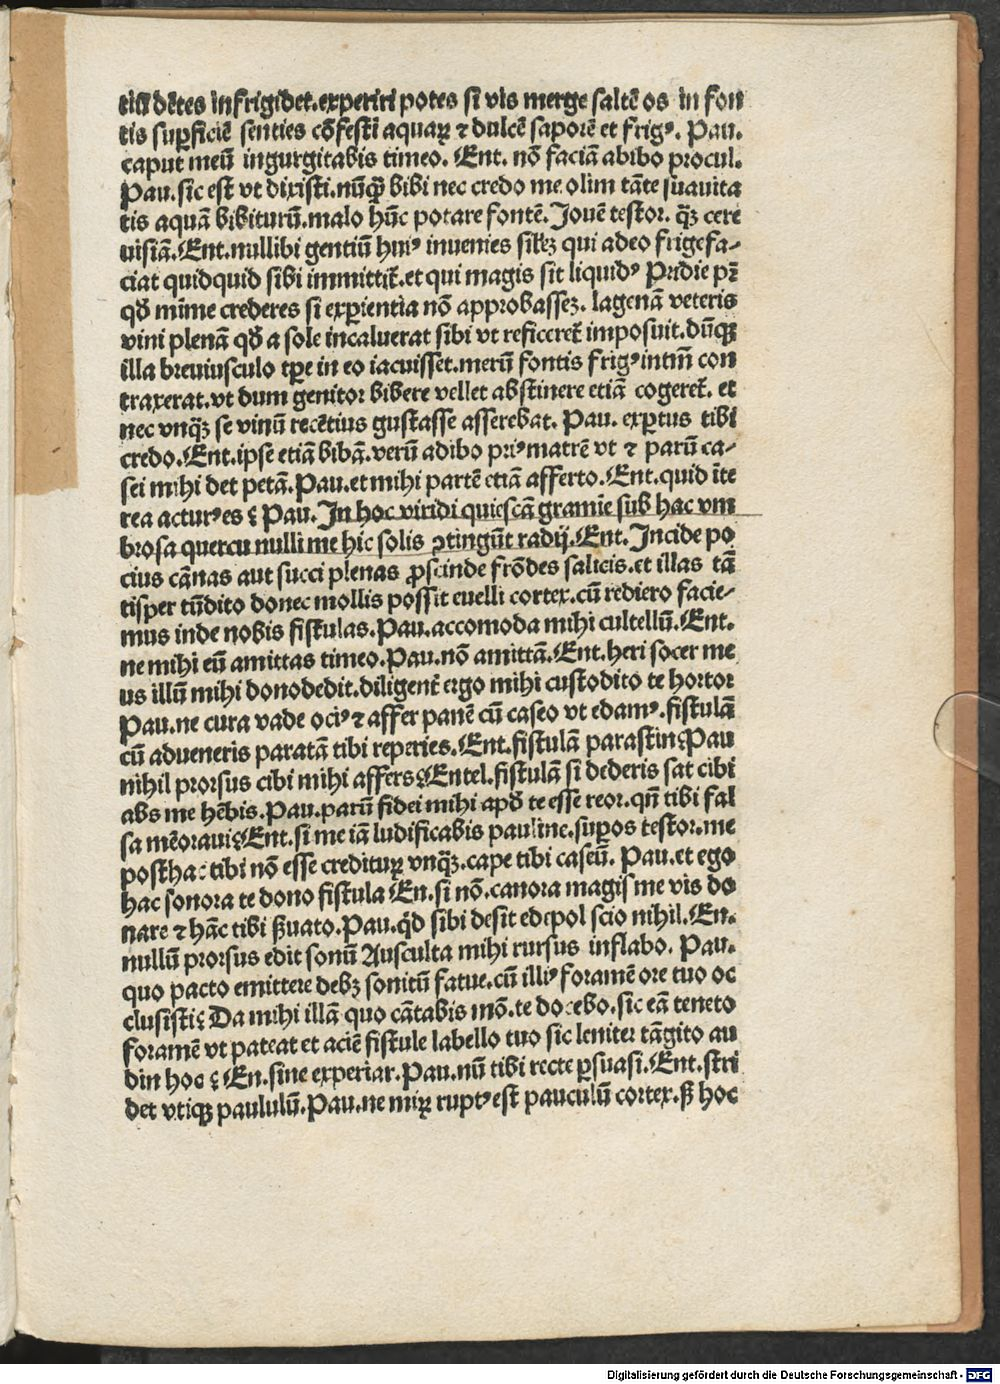 tiũ dẽtes infrigidet.experiri potes si vis merge saltẽ os in fon
tis suꝑficiẽ senties cõfestĩ aquaꝝ ⁊ dulcẽ saporẽ et frigꝰ. Pau.
caput meũ ingurgitabis timeo. Ent. nõ faciã abibo procul.
Pau.sic est vt dixisti.nũꝗ̃ bibi nec credo me olim tãte suauita
tis aquã bibiturũ.malo hũc potare fontẽ. Jouẽ testor. ꝗ̃ꝫ cere
uisiã. Ent.nullibi gentiũ huiꝰ inuenies silẽꝫ qui adeo frigefa-
ciat quidquid sibi immittit̃.et qui magis sit liquidꝰ Pridie pr̃
qđ mĩme crederes si exꝑientia nõ approbasseꝫ. lagenã veteris
vini plenã qđ a sole incaluerat sibi vt reficeret̃ imposuit.dũqꝫ
illa breuiusculo tꝑe in eo iacuisset.merũ fontis frigꝰ intm̃ con
traxerat.vt dum genitor bibere vellet abstinere etiã cogeret̃. et
nec vnꝗ̃ꝫ se vinũ recẽtius gustasse asserebat. Pau. exꝑtus tibi
credo.Ent.ipse etiã bibã.verũ adibo priꝰ matrẽ vt ⁊ parũ ca-
sei mihi det petã.Pau.et mihi partẽ etiã afferto.Ent.quid ĩte
rea acturꝰ es ? Pau.In hoc viridi quiescã gramĩe sub hac vm
brosa quercu nulli me hic solis ↄtingũt radij.Ent.Incide po
cius cãnas aut succi plenas ꝓscinde frõdes salicis.et illas tã
tisper tũdito donec mollis possit euelli cortex.cũ rediero facie-
mus inde nobis fistulas.Pau.accomoda mihi cultellũ.Ent.
ne mihi eũ amittas timeo.Pau.nõ amittã.Ent.heri socer me
us illũ mihi donodedit.diligent̃ ergo mihi custodito te hortor
Pau.ne cura vade ociꝰ ⁊ affer panẽ cũ caseo vt edamꝰ.fistulã
cũ adueneris paratã tibi reperies.Ent.fistulã parastin?Pau
nihil prorsus cibi mihi affers?Entel.fistulã si dederis sat cibi
abs me hẽbis.Pau.parũ fidei mihi apđ te esse reor.qñ tibi fal
sa mẽoraui?Ent.si me iã ludificabis pauline.suꝑos testor.me
posthac tibi nõ esse credituꝝ vnꝗ̃ꝫ.cape tibi caseũ. Pau.et ego
hac sonora te dono fistula En.si nõ.canora magis me vis do
nare ⁊ hãc tibi ẞuato.Pau.qđ sibi desit edepol scio nihil.En.
nullũ prorsus edit sonũ Ausculta mihi rursus inflabo. Pau.
quo pacto emittere debꝫ sonitũ fatue.cũ illiꝰ foramẽ ore tuo oc
clusisti? Da mihi illã quo cãtabis mõ.te docebo.sic eã teneto
foramẽ vt pateat et aciẽ fistule labello tuo sic leniter tãgito au
din hoc ? En.sine experiar.Pau.nũ tibi recte ꝑsuasi.Ent.stri
det vtiqꝫ paululũ.Pau.ne miꝝ ruptꝰ est pauculũ cortex.ẞ hoc
Digitalisierung gefördert durch die Deutsche Forschungsgemeinschaft - DFG